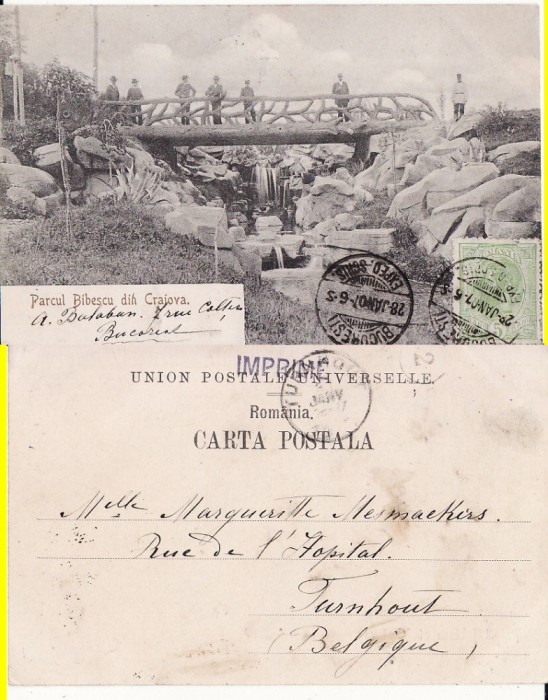 Parcul Bibescu din Craiova.
A. Bataban. 
Bucarest
BUCURESTI
28 JAN 07. 6-S
EXPED. SCRIS.
IMPRIME
UNION POSTALE UNIVERSELLE.
România.
CARTA POSTALA
Melle Margueritte Mesmaekers.
Rue de l'Hopital.
Turnhout
(Belgique)